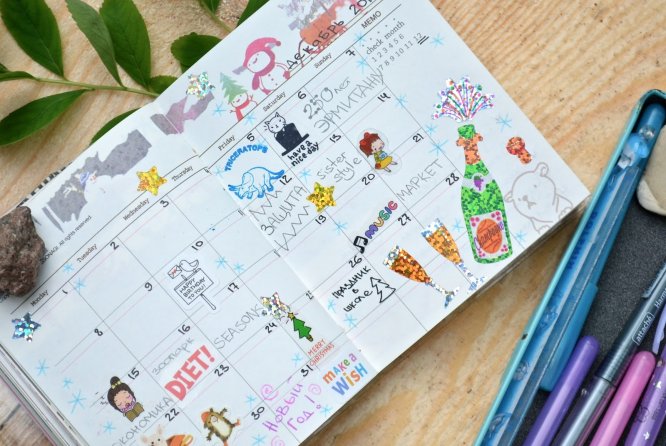 ДЕКАБРЬ 20
MEMO
check month
1 2 3 4 5 6
7 8 9 10 11 12
Monday
Tuesday
Wednesday
Thursday
Friday
Saturday
Sunday
1
2
3
5
6
7
TRICERATOPS
have a
nice day
250 лет
ЭРМИТАЖУ
8
9
10
12
13
14
HAPPY
BIRTHDAY
TO YOU!
ЗАЩИТА
sister
style
15
17
20
21
ЗООПАРК
DIET!
SEASONS
MUSIC
МАРКЕТ
22
24
26
27
28
ЭКОНОМИКА
MERRY
CHRISTMAS
ПРАЗДНИК
В
ШКОЛЕ
30
31
НОВЫЙ
ГОД!
MAKE A
WISH
all rights reserved.